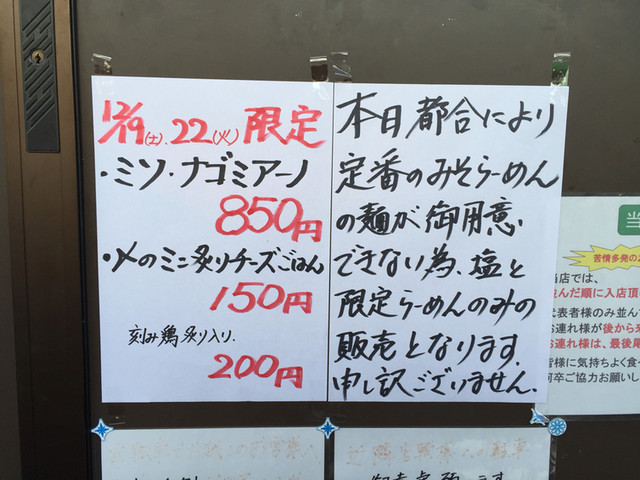 12/19(土).22(火)限定
・ミソ・ナゴミアーノ
850円
・〆のミニ炙りチーズごはん
150円
刻み鶏炙り入り.
200円
本日都合により
定番のみそらーめん
の麺が御用意
できない為、塩と
限定らーめんのみの
販売となります.
申し訳ございません.
当
苦情多発の
当店では、
並んだ順に入店頂
代表者様のみ並ん
お連れ様が後から来
お連れ様は、最後尾
皆様に気持ちよく食
何卒ご協力お願いし